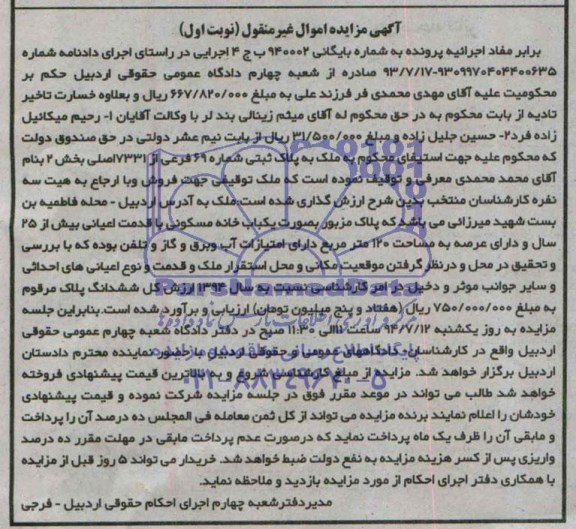 آگهی مزایده اموال غیر منقول (نوبت اول)
برابر مفاد اجرائیه پرونده به شماره بایگانی ۹۴۰۰۰۲ ب ج ۴ اجرایی در راستای اجرای دادنامه شماره
۹۳۰۹۹۷۰۴۰۴۴۰۰۶۳۵-۹۳/۷/۱۷ صادره از شعبه چهارم دادگاه عمومی حقوقی اردبیل حکم بر
محکومیت علیه آقای مهدی محمدی فر فرزند علی به مبلغ ۶۶۷/۸۲۰/۰۰۰ ریال و بعلاوه خسارت تاخیر
تادیه از بابت محکوم به در حق محکوم له آقای میثم زینالی بند لر با وکالت آقایان ۱- رحیم میکائیل
زاده فرد۲- حسین جلیل زاده و مبلغ ۳۱/۵۰۰/۰۰۰ ریال از بابت نیم عشر دولتی در حق صندوق دولت
که محکوم علیه جهت استیفای محکوم به ملک به پلاک ثبتی شماره ۶۹ فرعی از ۷۳۳۱اصلی بخش ۲ بنام
آقای محمد محمدی معرفی و توقیف نموده است که ملک توقیفی جهت فروش وبا ارجاع به هیت سه
نفره کارشناسان منتخب بدین شرح ارزش گذاری شده است.ملک به آدرس اردبیل - محله فاطمیه بن
بست شهید میرزانی می باشد که پلاک مزبور بصورت یکباب خانه مسکونی با قدمت اعیانی بیش از ۲۵
سال و دارای عرصه به مساحت ۱۲۰ متر مربع دارای امتیازات آب وبرق و گاز و تلفن بوده که با بررسی
و تحقیق در محل و درنظر گرفتن موقعیت مکانی و محل استقرار ملک و قدمت و نوع اعیانی های احداثی
و سایر جوانب موثر و دخیل در امر کارشناسی نسبت به سال ۱۳۹۴ ارزش کل ششدانگ پلاک مرقوم
به مبلغ ۷۵۰/۰۰۰/۰۰۰ ریال (هفتاد و پنج میلیون تومان) ارزیابی و برآورد شده است.بنابراین جلسه
مزایده به روز یکشنبه ۹۴/۷/۱۲ ساعت ۱۱الی ۱۱:۳۰ صبح در دفتر دادگاه شعبه چهارم عمومی حقوقی
اردبیل واقع در کارشناسان- دادگاههای عمومی و حقوقی اردبیل با حضور نماینده محترم دادستان
اردبیل برگزار خواهد شد. مزایده از مبلغ کارشناسی شروع و به بالاترین قیمت پیشنهادی فروخته
خواهد شد طالب می تواند در موعد مقرر فوق در جلسه مزایده شرکت نموده و قیمت پیشنهادی
خودشان را اعلام نمایند برنده مزایده می تواند از کل ثمن معامله فی المجلس ده درصد آن را پرداخت
و مابقی آن را ظرف یک ماه پرداخت نماید که درصورت عدم پرداخت مابقی در مهلت مقرر ده درصد
واریزی پس از کسر هزینه مزایده به نفع دولت ضبط خواهد شد. خریدار می تواند ۵ روز قبل از مزایده
با همکاری دفتر اجرای احکام از مورد مزایده بازدید و ملاحظه نماید.
مدیردفترشعبه چهارم اجرای احکام حقوقی اردبیل - فرجی
ParsNamadData
۰۲۱-۸۸۳۴۹۶۷۰-۵